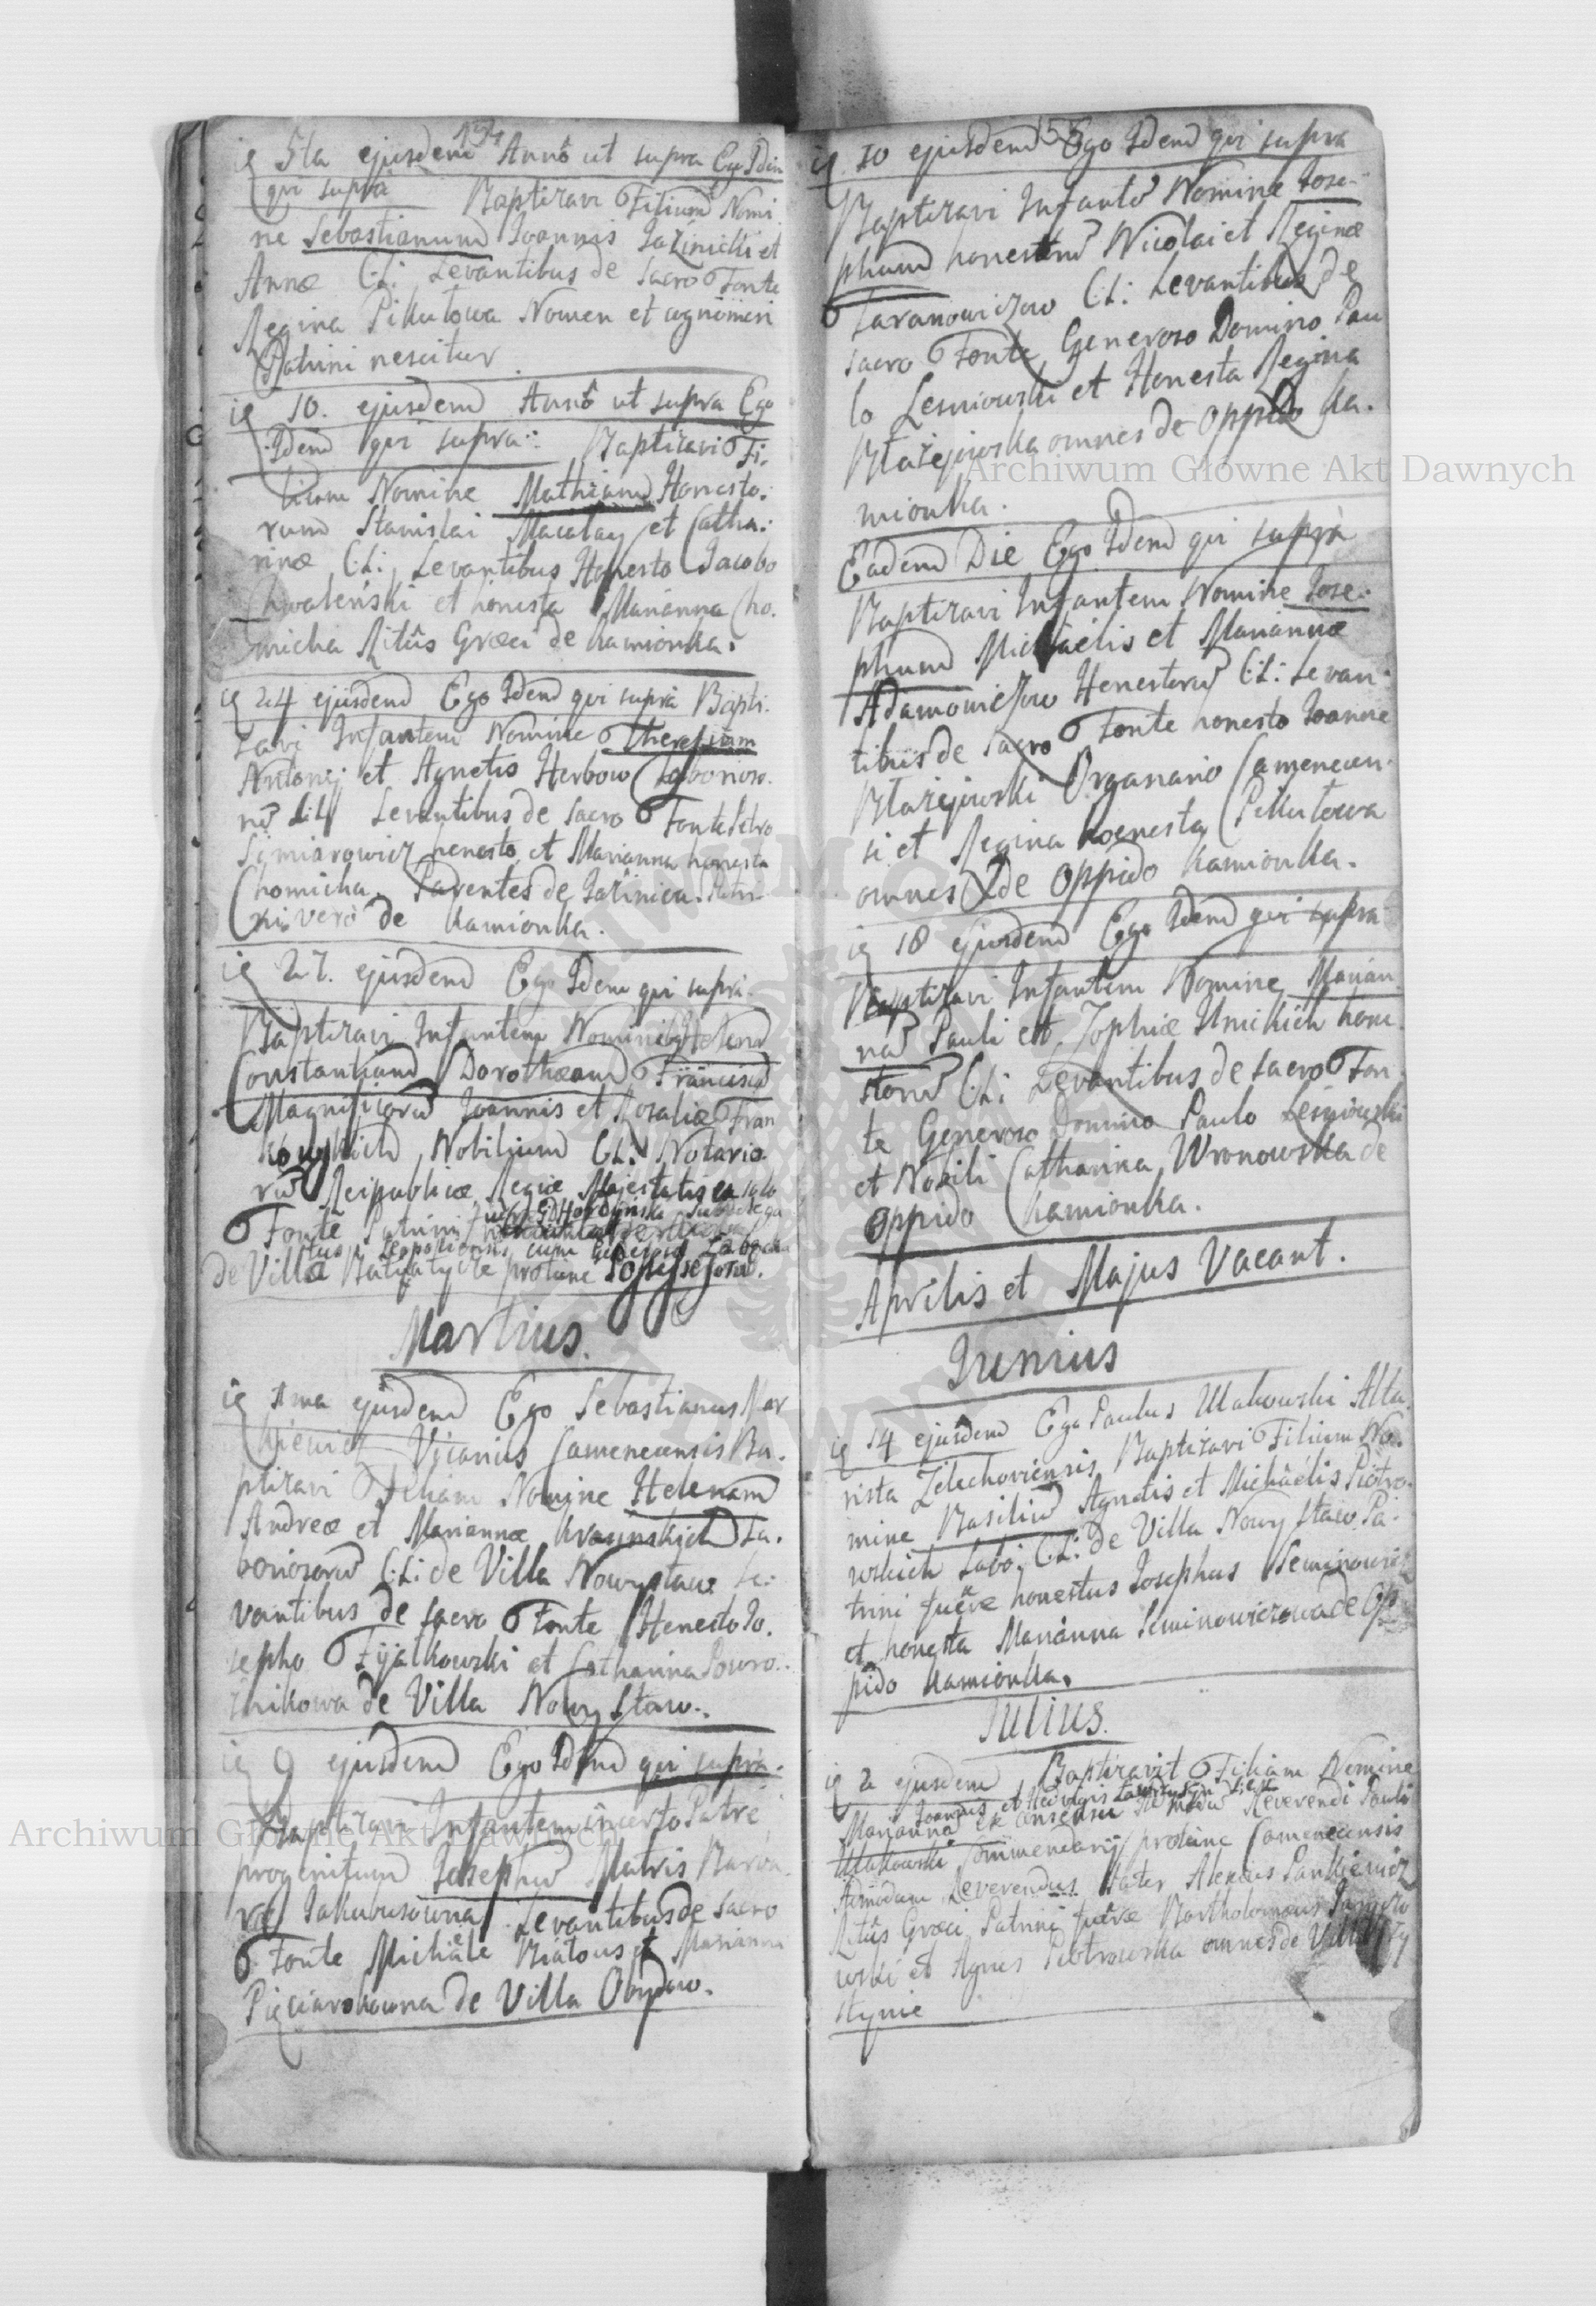 154
ię 5ta ejusdem Annô ut supra Ego Idem
qui suprà Baptizavi Filium Nomi
ne Sebastianum Joannis Jazinicki et
Annæ C:L: Levantibus de sacro Fonte
Regina Pikulowa Nomen et cognomen
Patrini nescitur
ię 10. ejusdem Annô ut supra Ego
Idem qui supra: Baptizavi Fi:
lium Nomine Mathiam Honesto:
rum Stanislai Macalay et Catha:
rinæ C:L: Levantibus Honesto Jacobo
Chwaleński et honesta Marianna Cho.
micha Ritûs Græci de Kamionka.
ię 24 ejusdem Ego Idem qui suprà Bapti.
zavi Infantem Nomine Theresiam
Antonij et Agnetis Herbow Laborioso.
rū C:L: Levantibus de sacro Fonte Petro
honesto et Marianna honesta
Chomicka. Parentes de Jazinica. Patri
ni verò de Kamionka.
ię 27. ejusdem Ego Idem qui suprà.
Baptizavi Infantem Nominibus Helenā
Constantiam Dorotheam Franciscā
Magnificorū Joannis et Rosaliæ Fran
Nobilium C:L: Notario
rū Reipublicæ Regiæ Majestatis ex sacro
Fonte Patrini
de Villa Batyatycze protunc Possessorū.
Martius.
ię 1ma ejusdem Ego Sebastianus Mar
kiewicz Vicarius Camenecensis Ba.
ptizavi Filiam Nomine Helenam
Andreæ et Mariannæ La.
boriosorū C:L: de Villa Nowystaw Le:
vantibus de sacro Fonte Honesto Jo.
sepho Fijałkowski et Catharina Powro.
znikowa de Villa Nowy Staw.
ię 9 ejusdem Ego Idem qui suprà.
Baptizavi Infantem incerto Patre
progenitum Josephū Matris Barba
ræ Jakubusowna. Levantibus de sacro
Fonte Michäele Białous et Marianna
Pięciarokowna de Villa Obydow.
155
ię 10 ejusdem Ego Idem qui supra
Baptizavi Infantē Nomine Jose:
phum honestorū Nicolai et Reginæ
Taranowiczow C:L: Levantibus de
sacro Fonte Generoso Domino Pau
lo Lesniowski et Honesta Regina
Błażejowska omnes de Oppido Ka.
mionka.
Eadem Die Ego Idem qui suprà
Baptizavi Infantem Nomine Jose:
phum Michaelis et Mariannæ
Adamowiczow Honestorū C:L: Levan:
tibus de sacro Fonte honesto Joanne
Błażejowski Organario Camenecen:
si et Regina honesta Pikulowa
omnes de Oppido Kamionka.
ię 18 ejusdem Ego Idem qui supra
Baptizavi Infantem Nomine Marian
nā Pauli et Zophiæ Ilnickich hone
storū C:L: Levantibus de sacro Fon
te Generoso Domino Paulo Lesniowski
et Nobili Catharina Wronowska de
Oppido Kamionka.
Aprilis et Majus Vacant.
Junius
ię 14 ejusdem Ego Paulus Makowski Alta
rista Zelechoviensis Baptizavi Filium No.
mine Basiliū Agnetis et Michäélis Piotro.
wskich Labo: C:L: de Villa Nowy staw Pa:
trini fuêre honestus Josephus Seminowicz
et honesta Marianna Seminowiczowa de Op
pido Kamionka.
Julius.
ię 2 ejusdem Baptizavit Filiam Nomine
Joannis et Hedvigis
Mariannā ex consensu Admodū Reverendi Pauli
Makowski Commendarij protunc Camenecensis
Admodum Reverendus Pater Alexius Pankiewicz
Ritûs Græci Patrini fuêre Bartholomæus
wski et Agnes Piotrowska omnes de Villa